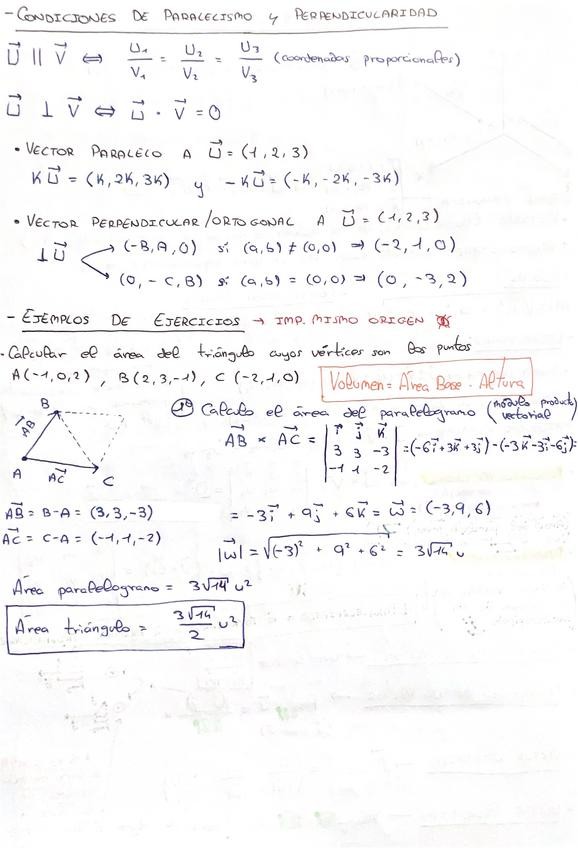 - CONDICIONES DE PARALELISMO y PERPENDICULARIDAD
U⃗ || V⃗ ⇔ U1/V1 = U2/V2 = U3/V3 (coordenadas proporcionales)
U⃗ ⊥ V⃗ ⇔ U⃗ · V⃗ = 0
• VECTOR PARALELO A U⃗ = (1, 2, 3)
KU⃗ = (K, 2K, 3K) y -KU⃗ = (-K, -2K, -3K)
• VECTOR PERPENDICULAR/ORTOGONAL A U⃗ = (1, 2, 3)
⊥U⃗ → (-B, A, 0) si (a,b) ≠ (0,0) ⇒ (-2, 1, 0)
→ (0, -C, B) si (a,b) = (0,0) ⇒ (0, -3, 2)
- EJEMPLOS DE EJERCICIOS → IMP. MISMO ORIGEN
· Calcular el área del triángulo cuyos vértices son los puntos
A(-1,0,2), B(2,3,-1), C(-2,1,0)
Volumen = Área Base · Altura
B
AB⃗
A
AC⃗
C
1º Calculo el área del paralelogramo (módulo producto vectorial)
AB⃗ × AC⃗ = | i⃗ j⃗ k⃗ | = (-6i⃗ + 3k⃗ + 3j⃗) - (-3k⃗ - 3i⃗ - 6j⃗) =
3 3 -3
-1 1 -2
AB⃗ = B-A = (3, 3, -3)
= -3i⃗ + 9j⃗ + 6k⃗ = w⃗ = (-3, 9, 6)
AC⃗ = C-A = (-1, 1, -2)
|w⃗| = √((-3)² + 9² + 6²) = 3√14 u
Área paralelogramo = 3√14 u²
Área triángulo = 3√14/2 u²